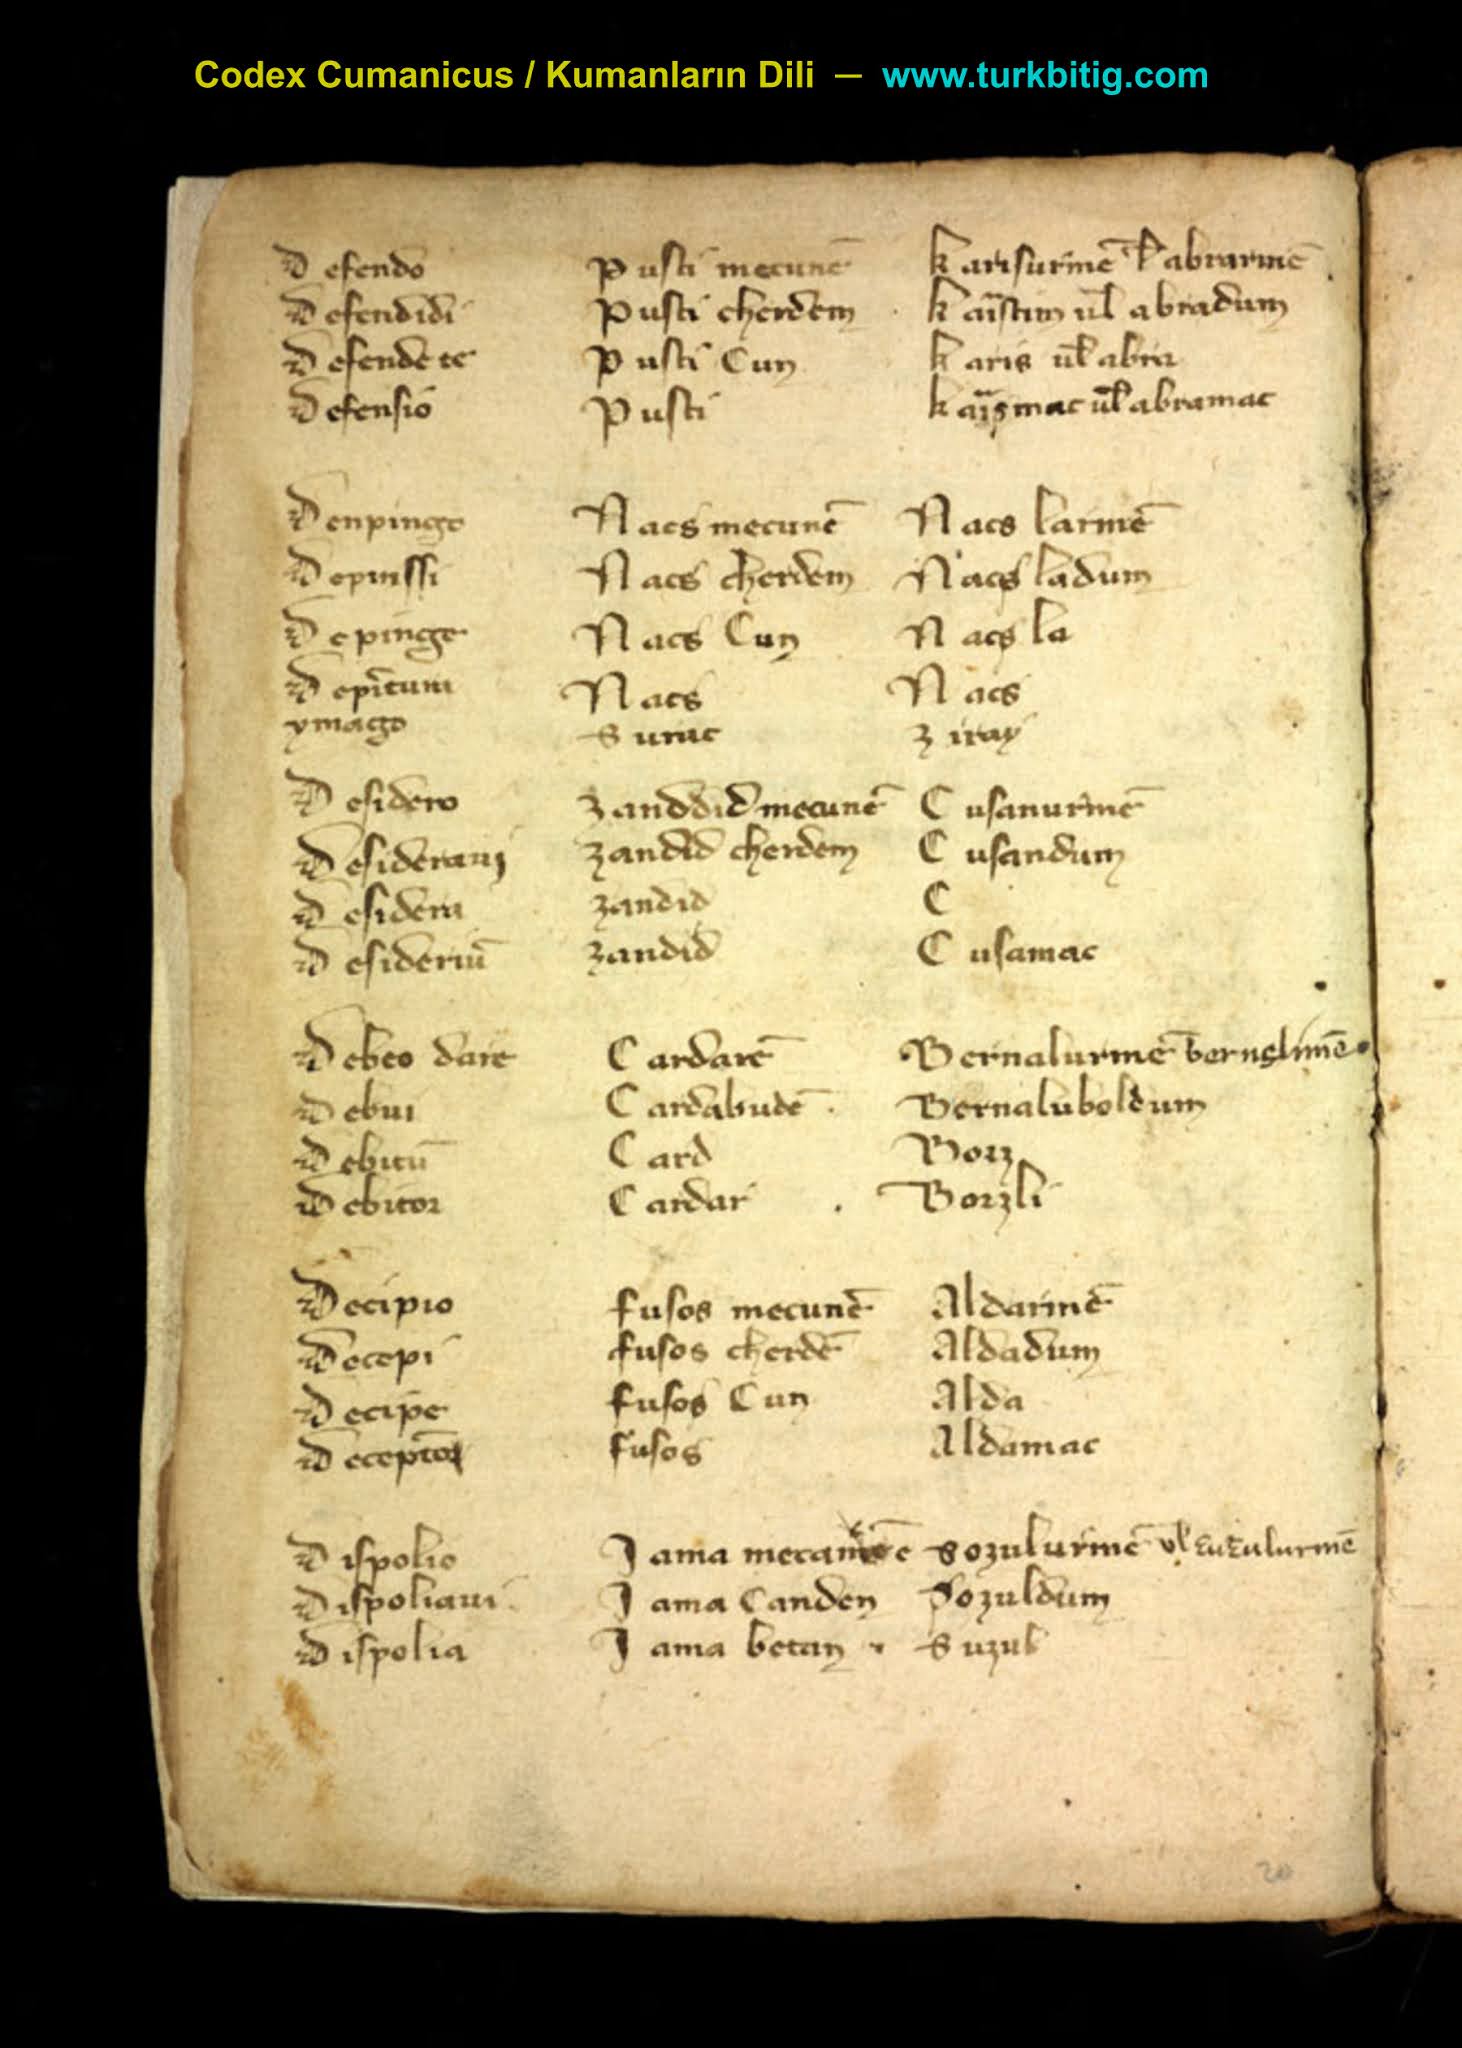 Codex Cumanicus / Kumanların Dili — www.turkbitig.com
Defendo Pusti mecunē karisurmē ul abrarmē
Defendidi Pusti cherdem karistim ul abradum
Defende te Pusti Cun karis ul abra
Defensio Pusti karismac ul abramac
Denpingo Nacs mecunē Nacs larmē
Depinssi Nacs cherdem Nacs ladum
Depinge Nacs Cun Nacs la
Depictum Nacs Nacs
ymago Surac
Desidero zanddid mecunē Cusanurmē
Desideraui zandid cherdem Cusandum
Desidera zandid C
Desideriū zandid Cusamac
Debeo dare Cardarē Bernalurmē bernelimē
Debui Cardabudē Bernaluboldum
Debitū Card Borz
Debitor Cardar Borzli
Decipio fusos mecunē Aldarmē
Decepi fusos cherdē Aldadum
Decipe fusos Cun Alda
fusos Aldamac
Dispolio Jama Sozulurmē ul tutulurmē
Dispoliaui Jama Canden Sozuldum
Dispolia Jama betan Suzul
20